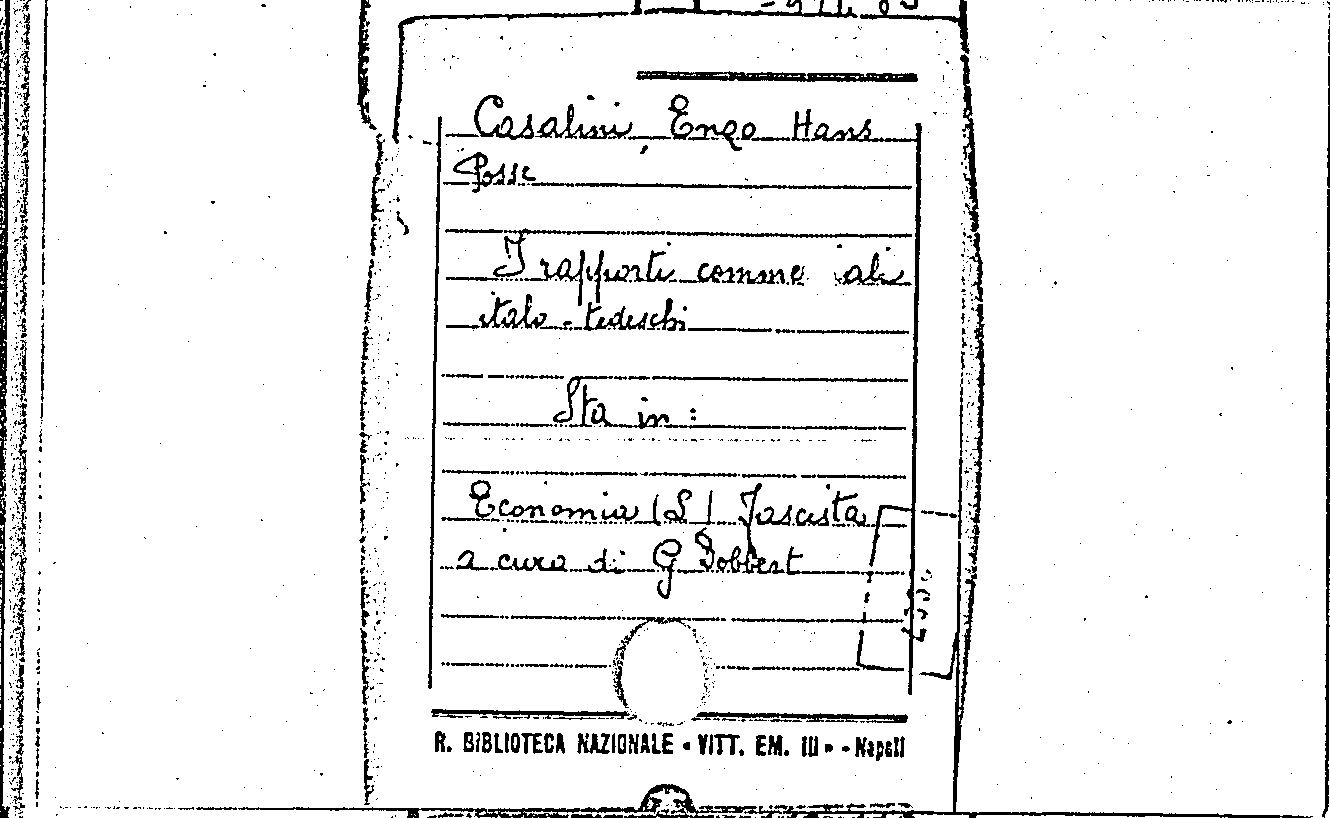 Casalini, Enzo Hans
Posse
I rapporti comme iali
italo-tedeschi
Sta in:
Economia (L') fascista
a cura di G Dobbert
R. BIBLIOTECA NAZIONALE "VITT. EM. III" - Napoli